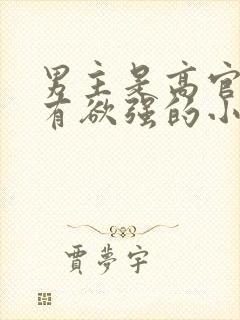 男主是高官
有欲强的小
賈夢宇